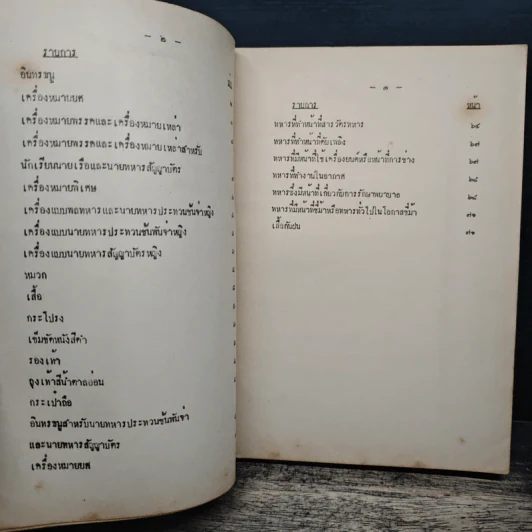 - ๒ -
รายการ
อินทรธนู
เครื่องหมายยศ
เครื่องหมายพรรคและเครื่องหมายเหล่า
เครื่องหมายพรรคและเครื่องหมายเหล่าสำหรับ
นักเรียนนายเรือและนายทหารสัญญาบัตร
เครื่องหมายพิเศษ
เครื่องแบบพลทหารและนายทหารประทวนชั้นจ่าหญิง
เครื่องแบบนายทหารประทวนชั้นพันจ่าหญิง
เครื่องแบบนายทหารสัญญาบัตรหญิง
หมวก
เสื้อ
กระโปรง
เข็มขัดหนังสีดำ
รองเท้า
ถุงเท้าสีน้ำตาลอ่อน
กระเป๋าถือ
อินทรธนูสำหรับนายทหารประทวนชั้นพันจ่า
และนายทหารสัญญาบัตร
เครื่องหมายยศ
- ๓ -
รายการ หน้า
ทหารที่ทำหน้าที่สารวัตรทหาร
ทหารที่ทำหน้าที่ดับเพลิง
ทหารที่มีหน้าที่ใช้เครื่องยนต์หรือหน้าที่การช่าง
ทหารที่ทำงานในอากาศ
ทหารซึ่งมีหน้าที่เกี่ยวกับการรักษาพยาบาล
ทหารที่มีหน้าที่ขี่ม้าหรือทหารทั่วไปในโอกาสขี่ม้า
เสื้อกันฝน